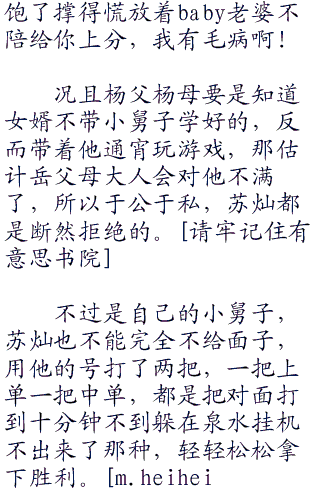 饱了撑得慌放着baby老婆不
陪给你上分，我有毛病啊！
况且杨父杨母要是知道
女婿不带小舅子学好的，反
而带着他通宵玩游戏，那估
计岳父母大人会对他不满
了，所以于公于私，苏灿都
是断然拒绝的。[请牢记住有
意思书院]
不过是自己的小舅子，
苏灿也不能完全不给面子，
用他的号打了两把，一把上
单一把中单，都是把对面打
到十分钟不到躲在泉水挂机
不出来了那种，轻轻松松拿
下胜利。[m.heihei